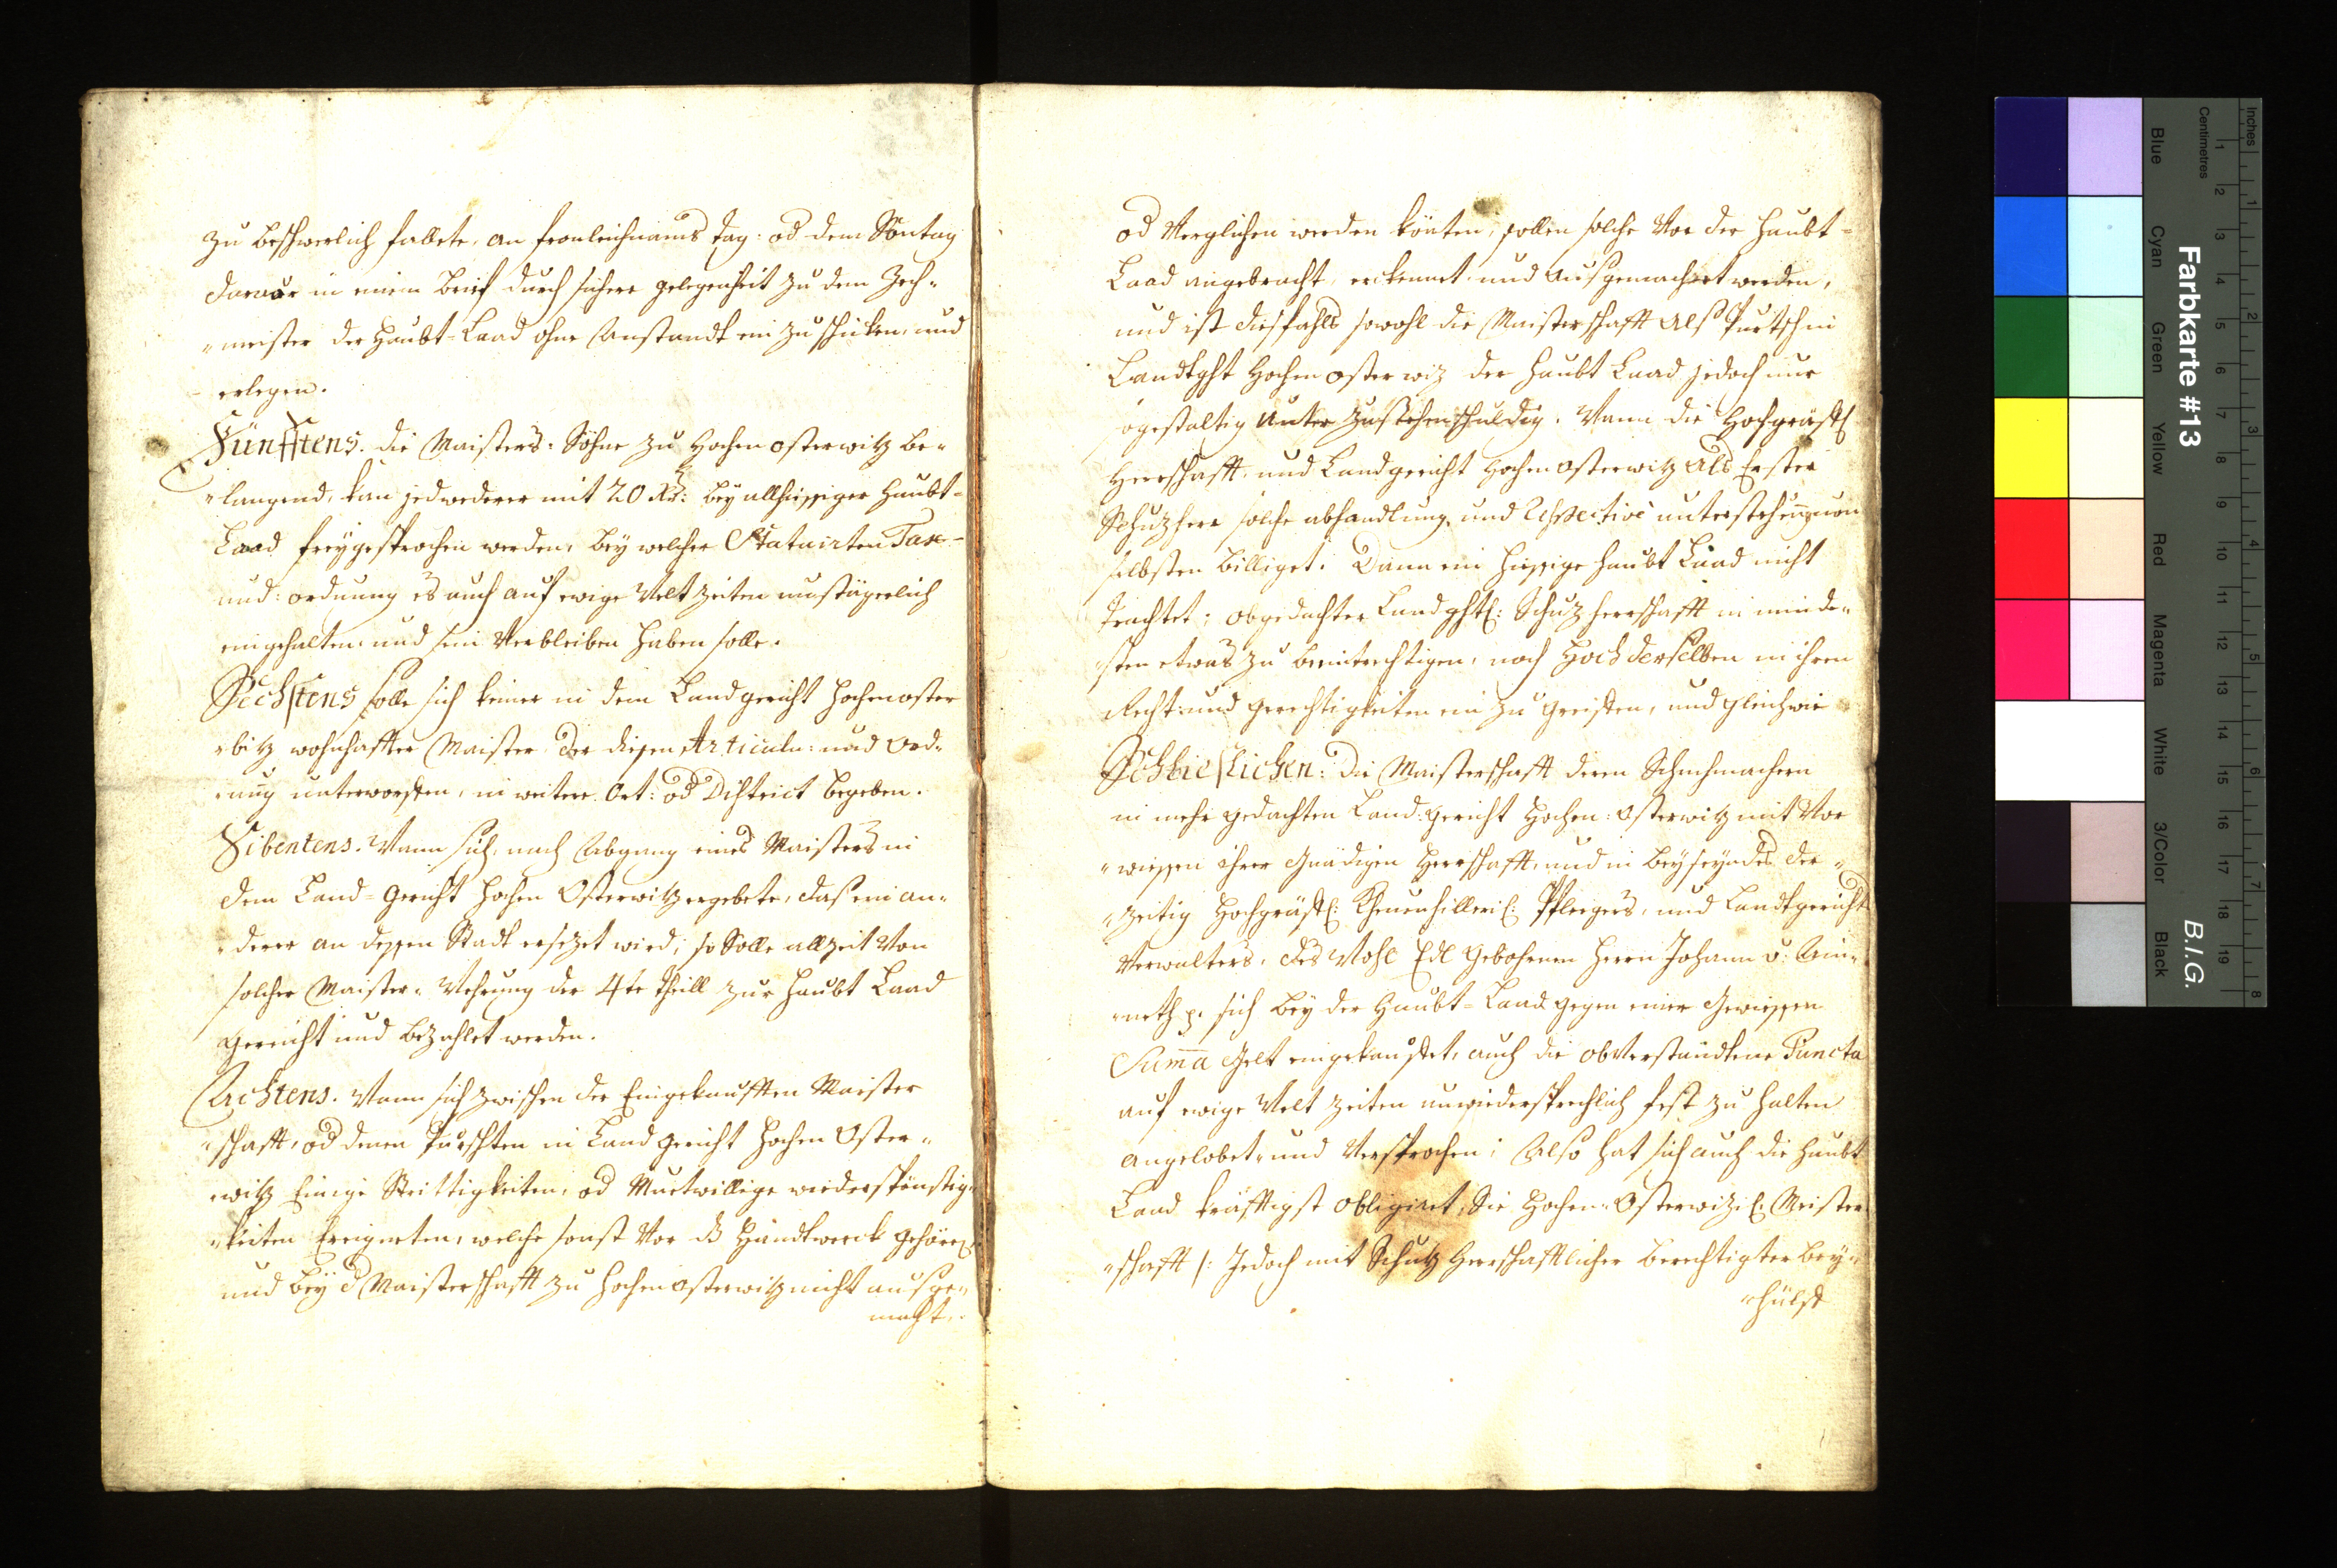 zu beschwerlich fallete, an fronleichnams tag: od dem Sontag
darvor in einem brief durch sichere gelegenheit zu dem Zech-
"meister der Haubt-Laad ohne Anstandt ein zu schicken, und
erlegen.
Fünfftens. die Maisters: Söhne zu Hochenosterwitz be-
"langend, kan jedwederer mit 20 Kr: bey allhiesiger Haubt-
Laad freygesprochen werden, bey welcher Statuirten Tax-
und: ordnung es auch auf ewige Welt zeiten
eingehalten, und sein Verbleiben haben solle.
Sechstens solle sich keiner in dem Landgericht Hochenoster
"bitz wohnhaffter Maister der diesen Articuln: und Ord-
"nung unterworffen, in weitere Ort: od District begeben.
Sibentens. Wann sich, nach Abgang eines Maisters in
dem Land-Gericht Hochen Osterwitz ergebete, daß ein an-
"derer an dessen Stadt ersezet wird; so Solle allzeit Von
solcher Maister-Wehrung der 4te theill zur Haubt Laad
gereicht und bezahlet werden.
Achtens. Wann sich zwischen der Eingekaufften Maister
"schafft, od denen Purschten in Landgericht Hochen Oster-
"witz Einige Strittigkeiten, od Muetwillige wiederspenstig-
"keiten Ereigneten, welche sonst Vor dß Handtwerck gehören
und bey d Maisterschafft zu Hochenosterwitz nicht ausge-
macht,
od Verglichen werden könten; sollen solche Vor der Haubt-
Laad angebracht, erkennet und Ausgemachet werden,
und ist diesfahls sowohl die Maisterschafft Als Purtsch in
Landtght Hochenosterwiz der Haubt Laad jedoch nur
ogestaltig Unter zustehen schuldig. Wann die Hochgräfl
Herrschafft, und Landgericht Hochenosterwitz Als Erster
Schuzherr solche abhandlung und Respective unterstehung von
selbsten billiget. Dann ein hiesige Haubt Laad nicht
trachtet; obgedachter Landghtl: Schuz herrschafft in minde-
"sten etwas zu beeintrechtigen, noch Hoch derselben in ihren
Recht: und gerechtigkeiten ein zu greiffen, und gleichwie
Schließlichen: die Maisterschafft deren Schuchmachern
in mehr gedachten Land:gericht Hochen:Osterwitz mit Vor
"wissen ihrer Gnädigen Herrschafft, und in beyseyn des der-
"zeitig Hochgräfl: Kheuenhilleril: Pfleegers, und Landtgericht
Verwalters, des Wohl Edl Gebohrnen Herrn Johann v: Ain-
"eth p. sich bey der Haubt-Laad gegen einer Gewissen
Suma Gelt eingekauffet, auch die obVerstandtene Puncta
auf ewige Welt zeiten unwiedersprechlich fest zu halten
angelobet, und Versprochen; Also hat sich auch die Haubt
Laad kräfftigst obligiret, die Hochen-Osterwizil: Meister
"schafft /: Jedoch mit Schutz Herrschafftlicher berechtigter bey-
"hülff
Farbkarte #13
B.I.G.
Inches
Centimetres
1 2 3 4 5 6 7 8 9 10 11 12 13 14 15 16 17 18 19
1 2 3 4 5 6 7 8
Blue
Cyan
Green
Yellow
Red
Magenta
White
3/Color
Black